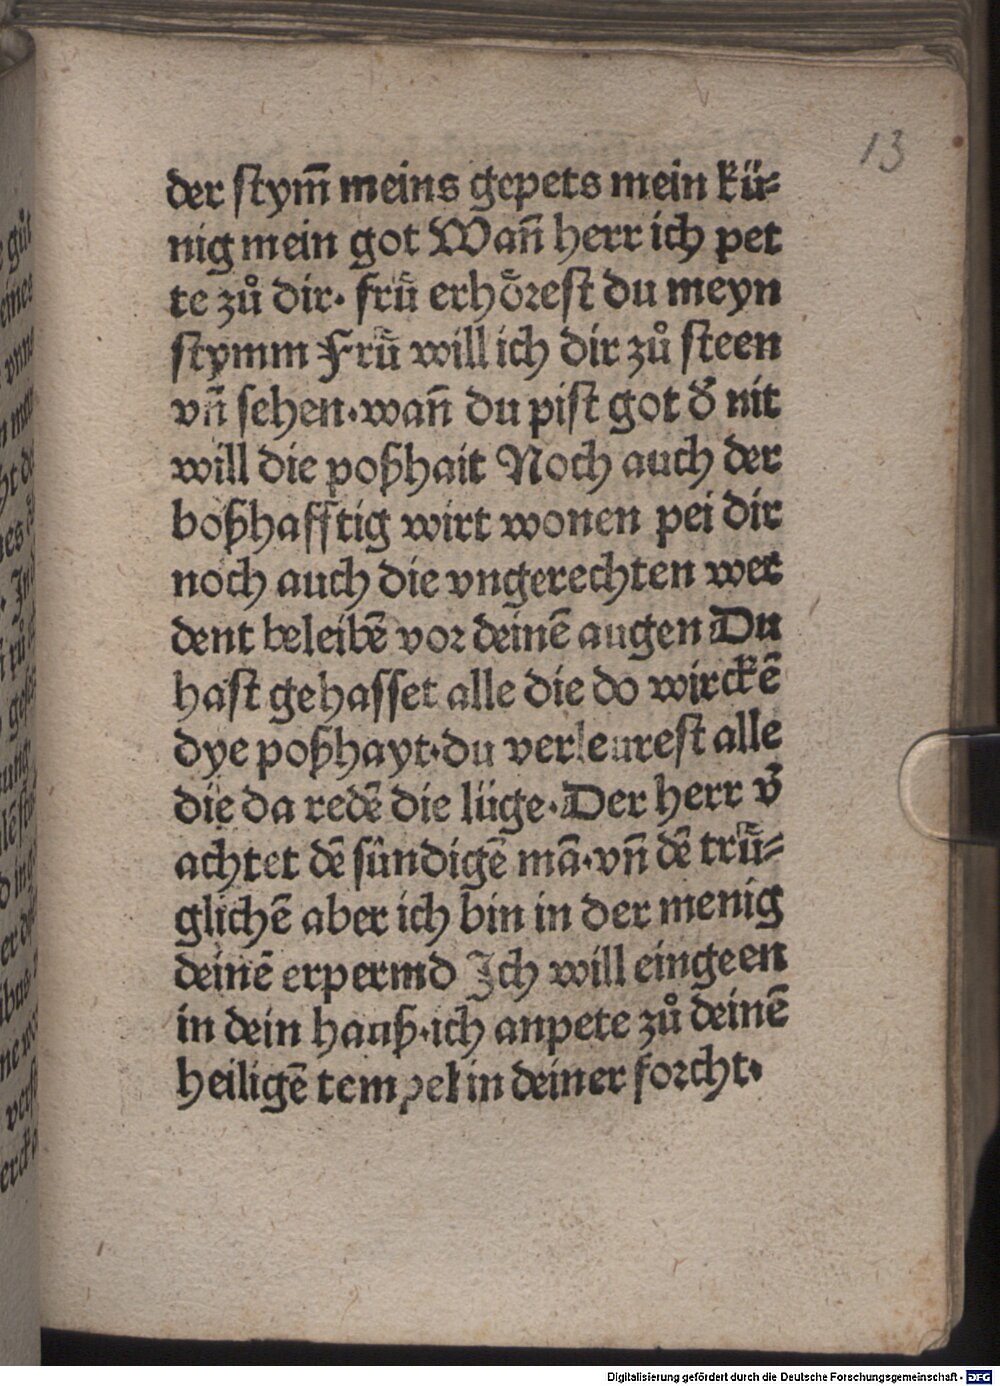 13
der stym̄ meins gepets mein kü⸗
nig mein got Wan̄ herr ich pet
te zů dir. frǖ erhörest du meyn
stymm Frǖ will ich dir zů steen
vn̄ sehen.wan̄ du pist got d̄ nit
will die poßhait Noch auch der
boßhafftig wirt wonen pei dir
noch auch die vngerechten wer
dent beleibē vor deinē augen Du
hast gehasset alle die do wirckē
dye poßhayt.du verleurest alle
die da redē die lüge.Der herr v̄
achtet dē sündigē mā.vn̄ dē trǖ⸗
glichē aber ich bin in der menig
deinē erpermd Ich will eingeen
in dein hauß.ich anpete zů deinē
heiligē tempel in deiner forcht.
Digitalisierung gefördert durch die Deutsche Forschungsgemeinschaft - DFG